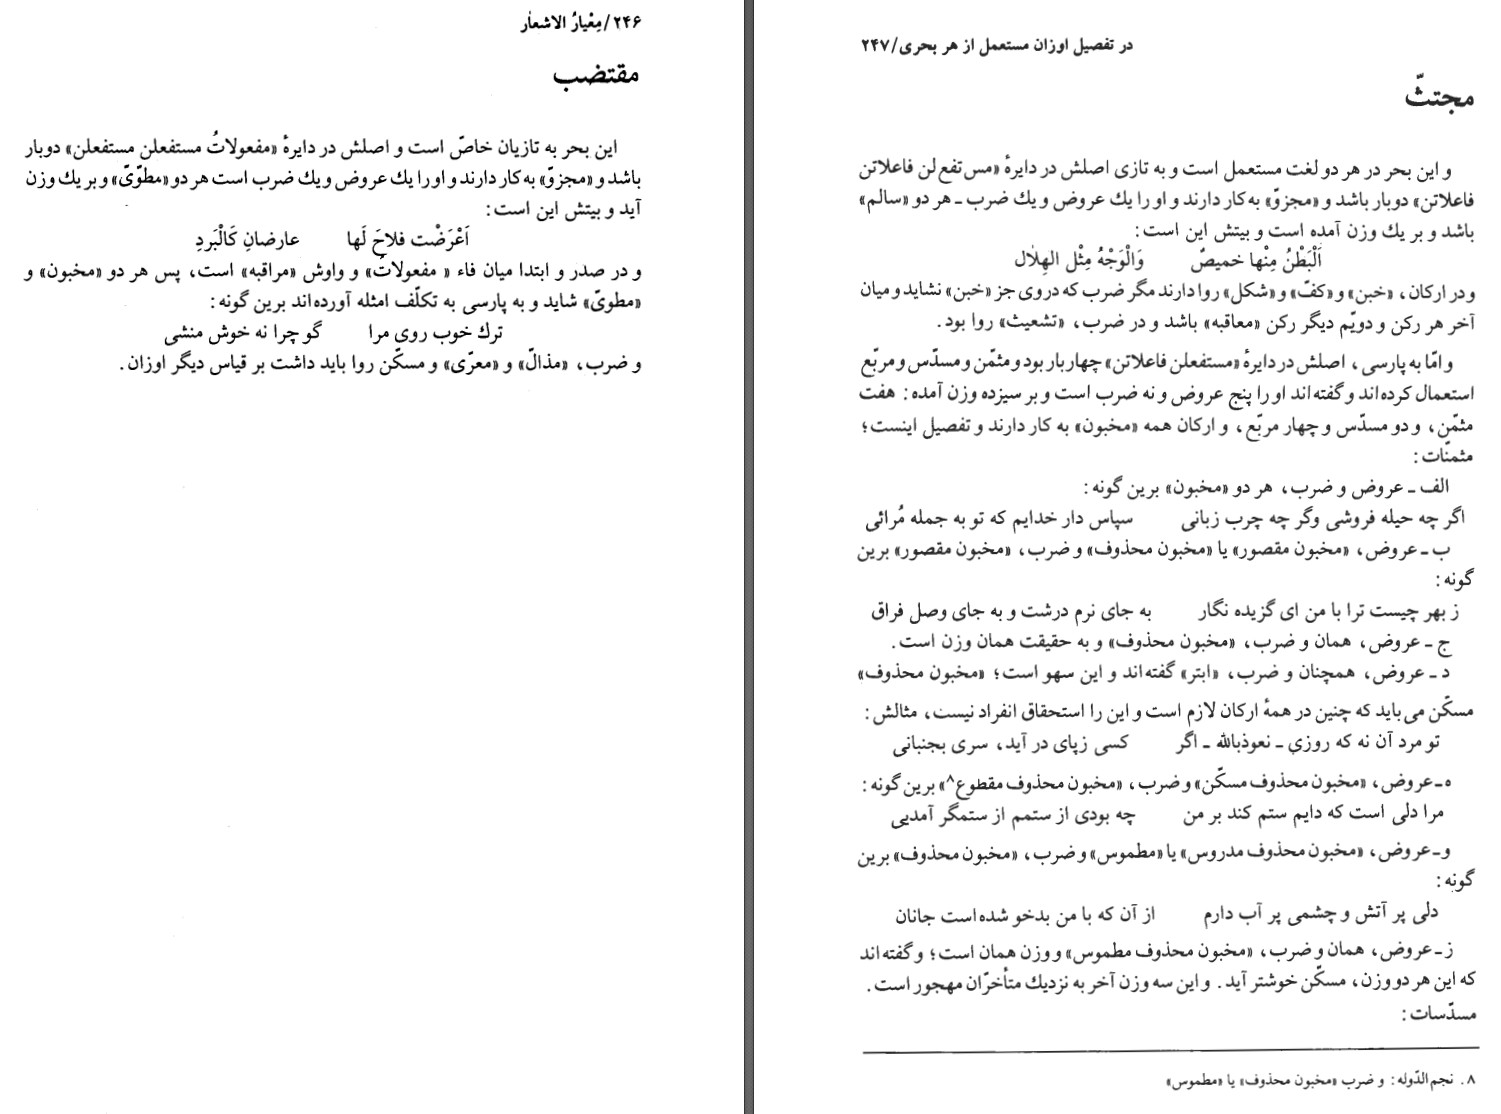 ۲۴۶/مِعْیارُ الاشعٰار
مقتضب
این بحر به تازیان خاصّ است و اصلش در دایرهٔ «مفعولاتُ مستفعلن مستفعلن» دوبار
باشد و «مجزوّ» به‌کار دارند و او را یك عروض و یك ضرب است هر دو «مطوّیّ» و بر یك وزن
آید و بیتش این است:
اَعْرَضْت فلاحَ لَها عارضانِ کَالْبَردِ
و در صدر و ابتدا میان فاء « مفعولاتُ» و واوش «مراقبه» است، پس هر دو «مخبون» و
«مطویّ» شاید و به پارسی به تکلّف امثله آورده‌اند برین گونه:
ترك خوب روی مرا گو چرا نه خوش منشی
و ضرب، «مذالّ» و «معرّی» و مسکّن روا باید داشت بر قیاس دیگر اوزان.
در تفصیل اوزان مستعمل از هر بحری/۲۴۷
مجتثّ
و این بحر در هر دو لغت مستعمل است و به تازی اصلش در دایرهٔ «مس تفع لن فاعلاتن
فاعلاتن» دوبار باشد و «مجزوّ» به‌کار دارند و او را یك عروض و یك ضرب ـ هر دو «سالم»
باشد و بر یك وزن آمده است و بیتش این است:
اَلْبَطْنُ مِنْها خمیصٌ وَالْوَجْهُ مِثْل الهِلٰال
و در ارکان، «خبن» و «کفّ» و «شکل» روا دارند مگر ضرب که در وی جز «خبن» نشاید و میان
آخر هر رکن و دویّم دیگر رکن «معاقبه» باشد و در ضرب، «تشعیث» روا بود.
و امّا به پارسی، اصلش در دایرهٔ «مستفعلن فاعلاتن» چهار بار بود و مثمّن و مسدّس و مربّع
استعمال کرده‌اند و گفته‌اند او را پنج عروض و نه ضرب است و بر سیزده وزن آمده: هفت
مثمّن، و دو مسدّس و چهار مربّع، و ارکان همه «مخبون» به کار دارند و تفصیل اینست؛
مثمنّات:
الف ـ عروض و ضرب، هر دو «مخبون» برین گونه:
اگر چه حیله فروشی وگر چه چرب زبانی سپاس دار خدایم که تو به جمله مُرائی
ب ـ عروض، «مخبون مقصور» یا «مخبون محذوف» و ضرب، «مخبون مقصور» برین
گونه:
ز بهر چیست ترا با من ای گزیده نگار به جای نرم درشت و به جای وصل فراق
ج ـ عروض، همان و ضرب، «مخبون محذوف» و به حقیقت همان وزن است.
د ـ عروض، همچنان و ضرب، «ابتر» گفته‌اند و این سهو است؛ «مخبون محذوف»
مسکّن می‌باید که چنین در همهٔ ارکان لازم است و این را استحقاق انفراد نیست، مثالش:
تو مرد آن نه که روزیِ ـ نعوذبالله ـ اگر کسی زپای در آید، سری بجنبانی
ه‍ ـ عروض، «مخبون محذوف مسکّن» و ضرب، «مخبون محذوف مقطوع۸» برین گونه:
مرا دلی است که دایم ستم کند بر من چه بودی از ستمم از ستمگر آمدیی
و ـ عروض، «مخبون محذوف مدروس» یا «مطموس» و ضرب، «مخبون محذوف» برین
گونه:
دلی پر آتش و چشمی پر آب دارم از آن که با من بدخو شده است جانان
ز ـ عروض، همان و ضرب، «مخبون محذوف مطموس» و وزن همان است؛ و گفته‌اند
که این هر دو وزن، مسکّن خوشتر آید. و این سه وزن آخر به نزدیك متأخرّان مهجور است.
مسدّسات:
۸. نجم‌الدّوله: و ضرب «مخبون محذوف» یا «مطموس»